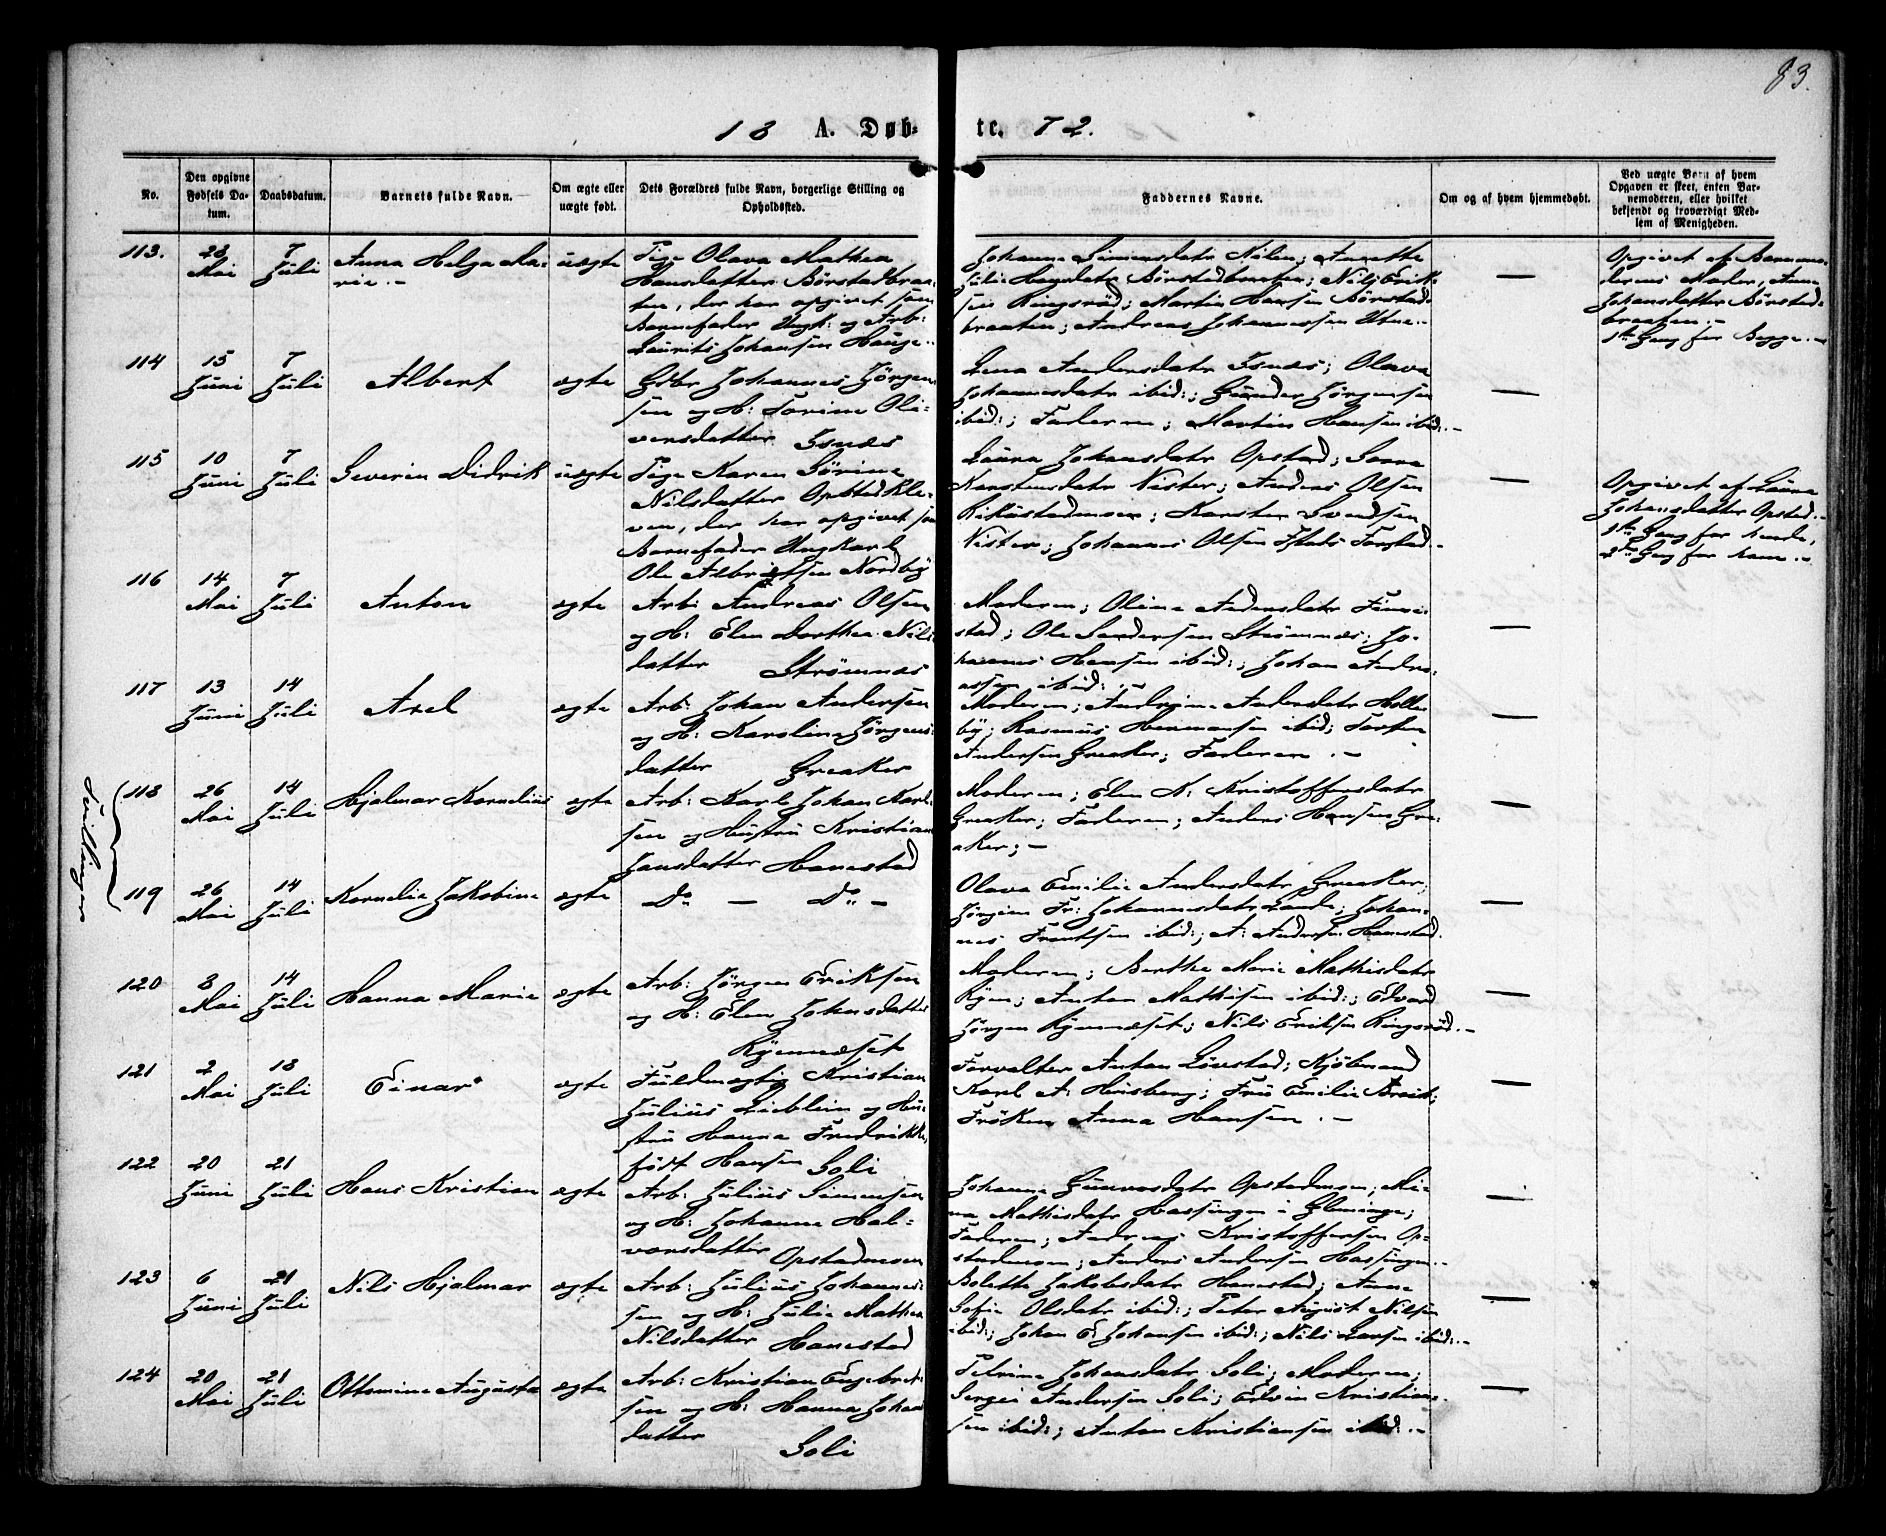 83.
18 A. Døb-
te. 72.
No.
Den opgivne
Fødsels Da-
tum.
Daabsdatum.
Barnets fulde Navn.
Om ægte eller
uægte født.
Dets Forældres fulde Navn, borgerlige Stilling og
Opholdssted.
Faddernes Navne.
Om og af hvem hjemmedøbt.
Ved uægte Barn af hvem
Opgaven er skeet, enten Bar-
nemoderen, eller hvilket
bekjendt og troværdigt Med-
lem af Menigheden.
113.
23
Mai
7
Juli
Anna Helga Ma-
rie.-
uægte
Pige Olava Mathea
Hansdatter Börstadbraa-
ten, der har opgivet som
Barnefader Ungk: og Arb:
Laurits Johansen Hauge.
Johanne Simensdatr Nilen; Annette
Julie Hansdatr Börstadbraaten; Nils Erik-
sen Ringsröd; Martin Hansen Börstad-
braaten; Andreas Johannessen Utne.-
—
Opgivet af Barnemo-
derens Moder, Anne
Johansdatter Börstad-
braaten.-
1ste Gang for Begge.-
114
15
Juni
7
Juli
Albert
ægte
Gdbr Johannes Jörgen-
sen og H: Torine Oli-
versdatter Isnæs
Lena Andersdatr Isnæs; Olava
Johannesdatr ibid:; Gunder Jörgensen
ibid:; Faderen; Martin Hansen ibid:.-
—
115
10
Juni
7
Juli
Severin Didrik
uægte
Pige Karen Sörine
Nilsdatter Opstadkle-
ven, der har opgivet som
Barnefader Ungkarl
Ole Albretsen Nordby
Laura Johansdatr Opstad;
Karstensdatr Nister; Anders Olsen
; Karsten Svendsen
Nister; Johannes Olsen
—
Opgivet af Laura
Johansdatter Opstad.-
1ste Gang for hende,
2den Gang for ham.-
116
14
Mai
7
Juli
Anton
ægte
Arb: Andreas Olsen
og H: Elen Dorthea Nils-
datter Strömnæs
Moderen; Oline Andersdatr
stad; Ole Sandersen Strömnæs; Jo-
hannes Hansen ibid:; Johan Andre-
assen ibid:.-
—
117
13
Juni
14
Juli
Axel
ægte
Arb: Johan Andersen
og H: Karoline Jörgens-
datter Greaker
Moderen; Andrine Andersdatr Holle-
by; Rasmus Hermansen ibid; Torsten
Andersen Greaker; Faderen.-
—
Tvillinger
118
26
Mai
14
Juli
Hjalmar Kornelius
ægte
Arb: Karl Johan Karl-
sen og Hustru Kristiane
Jansdatter Hanestad
Moderen; Elen N: Kristoffersdatr
Greaker; Faderen; Anders Hansen Gre-
aker;-
—
119
26
Mai
14
Juli
Kornelie Jakobine
ægte
Do — Do —
Olava Emilie Andersdatr Greaker;
Jörgine Fr: Johannesdatr Lande; Johan-
nes Frantsen ibid:; A: Andersen Hanestad.
—
120
3
Mai
14
Juli
Hanna Marie
ægte
Arb: Jörgen Eriksen
og H: Elen Johnsdatter
Ryennæset
Moderen; Berthe Marie Mathisdatr
Ryen; Anton Mathisen ibid:; Edvard
Jörgen Ryennæset; Nils Eriksen Ringsröd.-
—
121
2
Mai
18
Juli
Einar
ægte
Fuldmægtig Kristian
Julius Lieblein og Hu-
stru Hanna Fredrikke,
födt Hansen Soli
Forvalter Anton Lövstad; Kjöbmand
Karl A: Huisberg; Fru Emilie Broch;
Fröken Anna Hansen.-
—
122
20
Juni
21
Juli
Hans Kristian
ægte
Arb: Julius Simensen
og H: Johanne Hal-
vorsdatter Opstadmoen
Johanne Gunnersdatr Opstadmoen; Mi-
na Mathisdatr Hassingen i Glemminge;
Faderen; Andreas Kristoffersen Op-
stadmoen; Anders Andersen Hassingen.-
—
123
6
Juni
21
Juli
Nils Hjalmar
ægte
Arb: Julius Johannes-
sen og H: Julie Mathea
Nilsdatter Hanestad
Bolette Jakobsdatr Hanestad; Anne
Sofie Olsdatr ibid:; Peter August Nilsen
ibid:; Johan E Johansen ibid:; Nils Larsen ibid:.-
—
124
20
Mai
21
Juli
Ottomine Augusta
ægte
Arb: Kristian Engebret-
sen og H: Hanna Johans-
datter Soli
Petrine Johansdatr Soli; Moderen;
Andersen Soli; Edvin Kristian-
sen ibid:; Anton Kristiansen ibid:.-
—